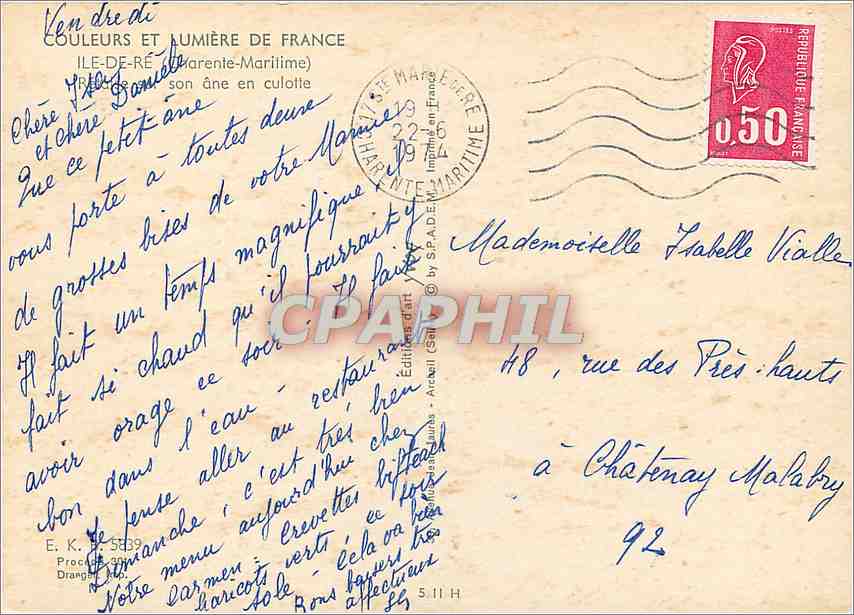 Vendredi
COULEURS ET LUMIÈRE DE FRANCE
ILE-DE-RÉ (Charente-Maritime)
son âne en culotte
Chère Isa
et chère Danièle
Que ce petit âne
vous porte à toutes deux
de grosses bises de votre Mamie
Il fait un temps magnifique, il
fait si chaud qu'il pourrait y
avoir orage ce soir. Il fait
bon dans l'eau -
Je pense aller au restaurant
Dimanche, c'est très bien.
Notre menu aujourd'hui chez
Carmen : Crevettes bifteack
haricots verts, ce soir
sole - Cela va bien
Bons baisers très
affectueux
E. K. B. 5839
Procédé 301
Draeger Imp.
5 11 H
Éditions d'art YVON
© by S.P.A.D.E.M. Imprimé en France
Avenue Jean-Jaurès - Arcueil (Seine)
17 STE MARIE DE RE
19 H
22-6
1974
CHARENTE MARITIME
POSTES
REPUBLIQUE FRANÇAISE
0,50
Mademoiselle Isabelle Vialle
48, rue des Près-hauts
à Châtenay Malabry
92
CPAPHIL